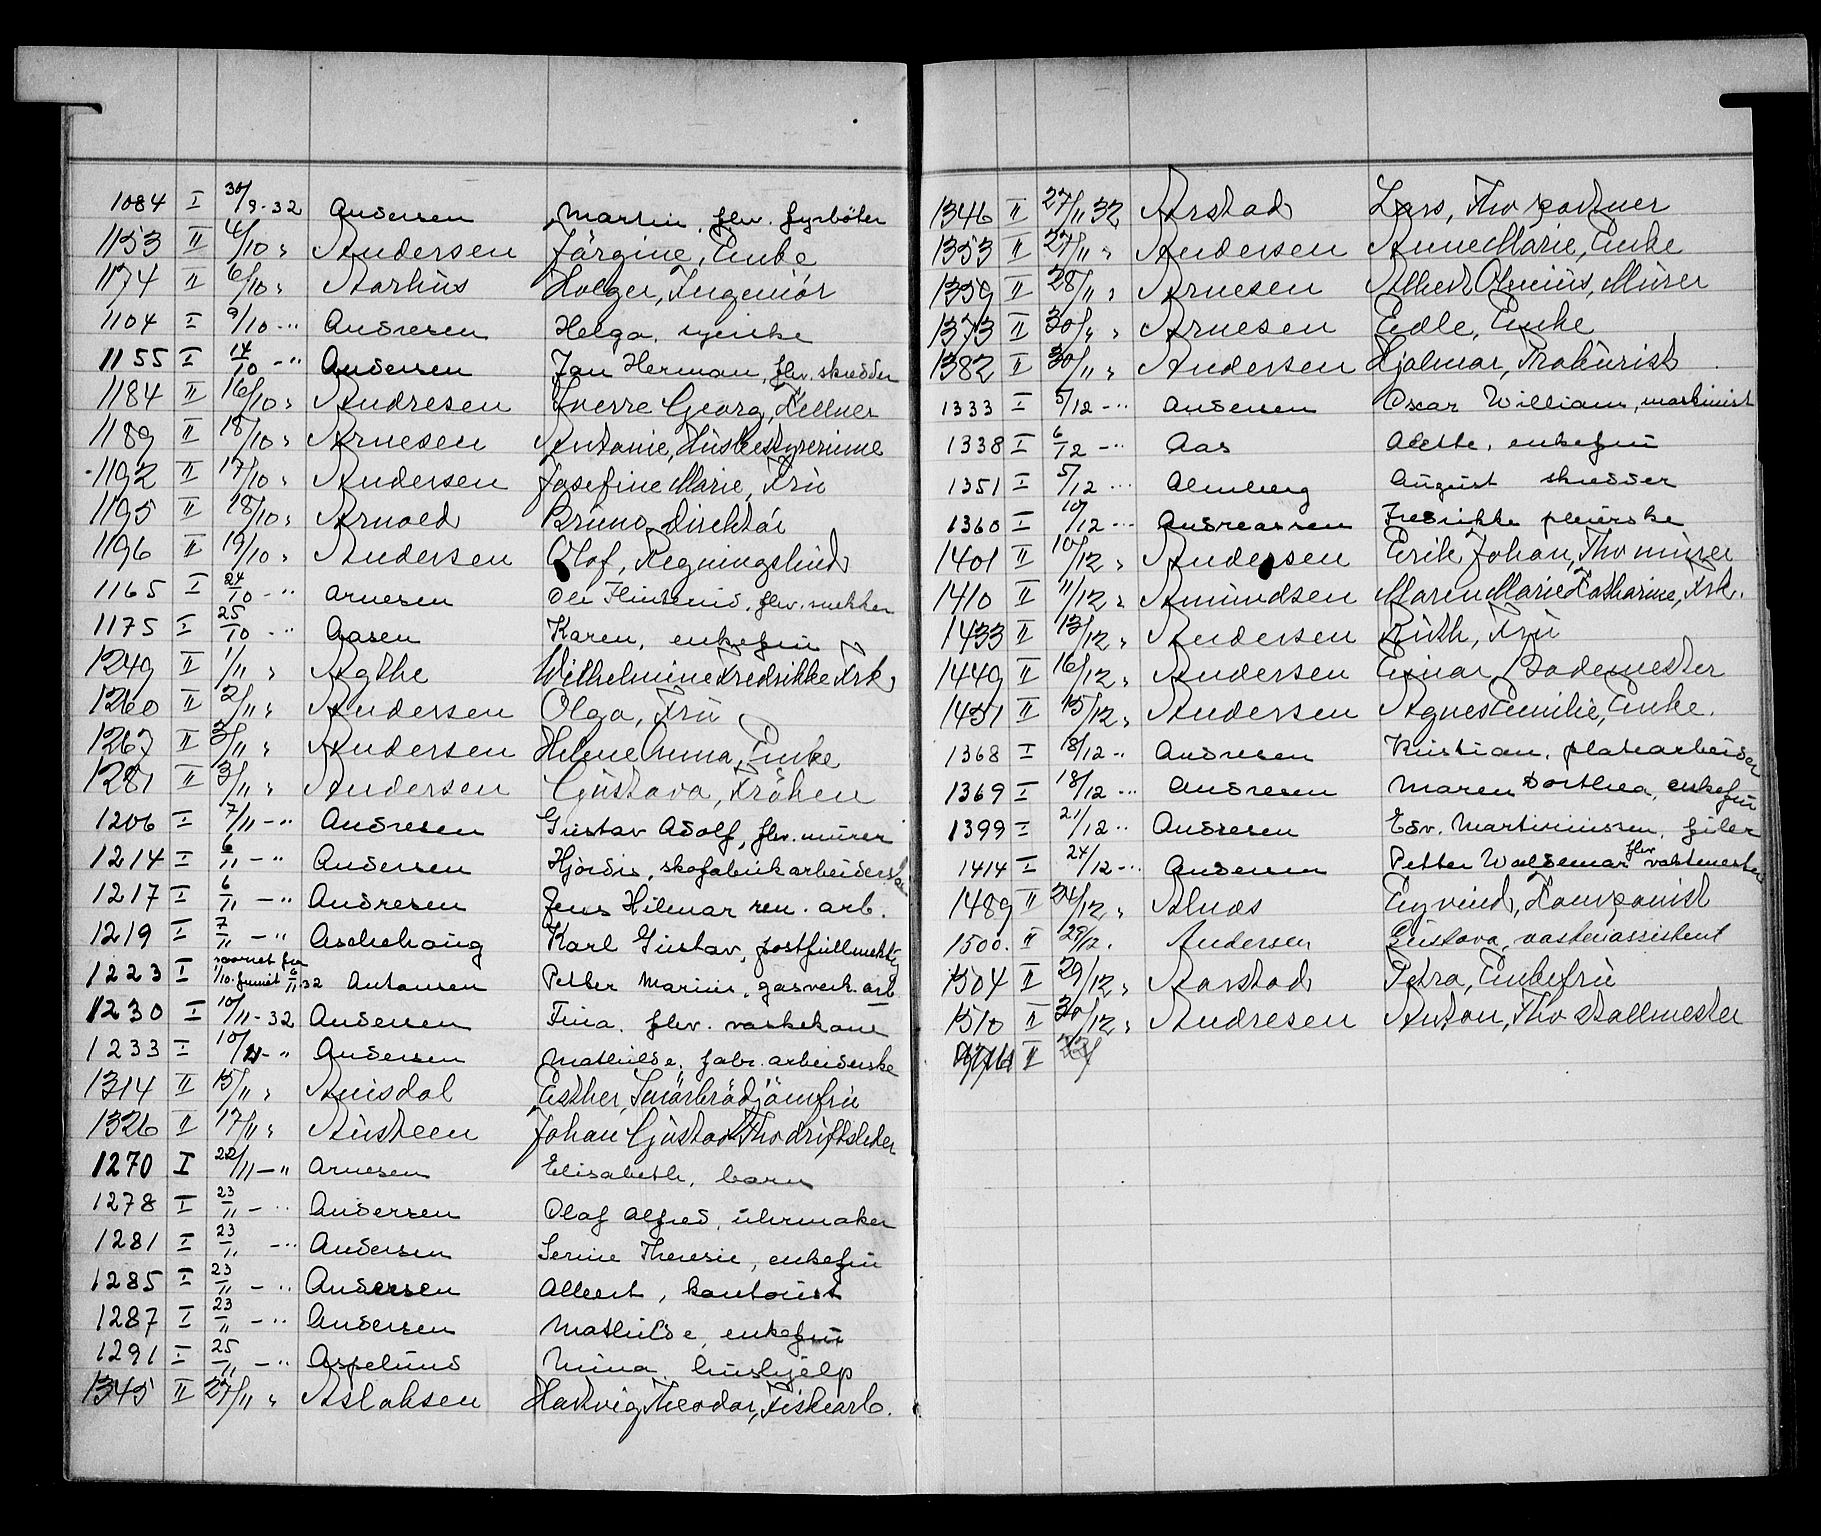 1084 I 30/9-32 Andersen Martin, fhv. fyrböter
1153 II 4/10 " Andersen Jörgine, Enke
1174 II 6/10 " Aarhus Holger, Ingeniör
1104 I 9/10 -" Andresen Helga
1155 I 14/10 -" Andersen Jan Herman, fhv. skredder
1184 II 16/10 " Andresen Sverre Georg, Kellner
1189 II 18/10 " Arnesen Antonie, Husbestyrerinne
1192 II 17/10 " Andersen Josefine Marie, Fru
1195 II 18/10 " Arnold Bruno, Direktör
1196 II 19/10 " Andersen Olaf, Regningsbud
1165 I 24/10 -" Arnesen Ole, fhv. snekker
1175 I 25/10 -" Aasen Karen, enkefru
1249 II 1/11 " Agthe Wilhelmine Fredrikke Frk.
1260 II 2/11 " Andersen Olga, Fru
1267 II 3/11 " Andersen Helene Anna, Enke
1281 II 3/11 " Andersen Gustava, Fröken
1206 I 7/11 -" Andresen Gustav Adolf, fhv. murer
1214 I 6/11 -" Andersen Hjördis, skofabrikarbeiderske
1217 I 6/11 -" Andresen Jens Hilmar ren. arb.
1219 I 7/11 -" Aschehoug Karl Gustav, postfullmektig
1223 I savnet fra 1/10. funnet 6/11 32 Antonsen Petter Marius, gasverk. arb
1230 I 10/11-32 Andersen Tina, fhv. vaskekone
1233 I 10/11 -" Andersen Mathilde, fabr. arbeiderske
1314 II 15/11 " Amsdal Esther, Smörbrödjomfru
1326 II 17/11 " Austeen Johan Gustav Fhv driftsleder
1270 I 22/11 -" Arnesen Elisabeth, barn
1278 I 23/11 -" Andersen Olaf Alfred, uhrmaker
1281 I 23/11 -" Andersen Serine Theresie, enkefru
1285 I 23/11 -" Andersen Albert, kontorist
1287 I 23/11 -" Andersen Mathilde, enkefru
1291 I 25/11 -" Aspelund Mina, hushjelp
1345 II 27/11 " Aslaksen Hartvig Theodor, Fiskearb.
1346 II 27/11 32 Arstad Lars, Fhv portner
1353 II 27/11 " Andersen Anne Marie, Enke
1359 II 28/11 " Arnesen Albert, Murer
1373 II 30/11 " Arnesen Edle, Enke
1382 II 30/11 " Andersen Hjalmar, Prokurist
1333 I 5/12 -" Andersen Oscar William, maskinist
1338 I 6/12 -" Aas Adette, enkefru
1351 I 5/12 -" Almberg August skredder
1360 I 10/12 -" Andreassen Fredrikke pleierske
1401 II 10/12 " Andersen Erik Johan, Fhv murer
1410 II 11/12 " Amundsen Maren Marie Katharine, Frk.
1433 II 13/12 " Andersen Ruth, Fru
1449 II 16/12 " Andersen Einar, Bademester
1451 II 15/12 " Andersen Agnes Emilie, Enke.
1368 I 18/12 -" Andresen Kristian, platearbeider
1369 I 18/12 -" Andresen Maren Dorthea, enkefru
1399 I 21/12 -" Andresen Edv. Martiniussen, filer
1414 I 24/12 -" Andersen Petter Waldemar fhv vaktmester
1489 II 24/12 " Alnæs Eyvind, Komponist
1500. II 29/12. Andersen Gustava
1504 II 29/12 " Aarstad Petra, Enkefru
1510 II 30/12 " Andresen Anton, Fhv stallmester